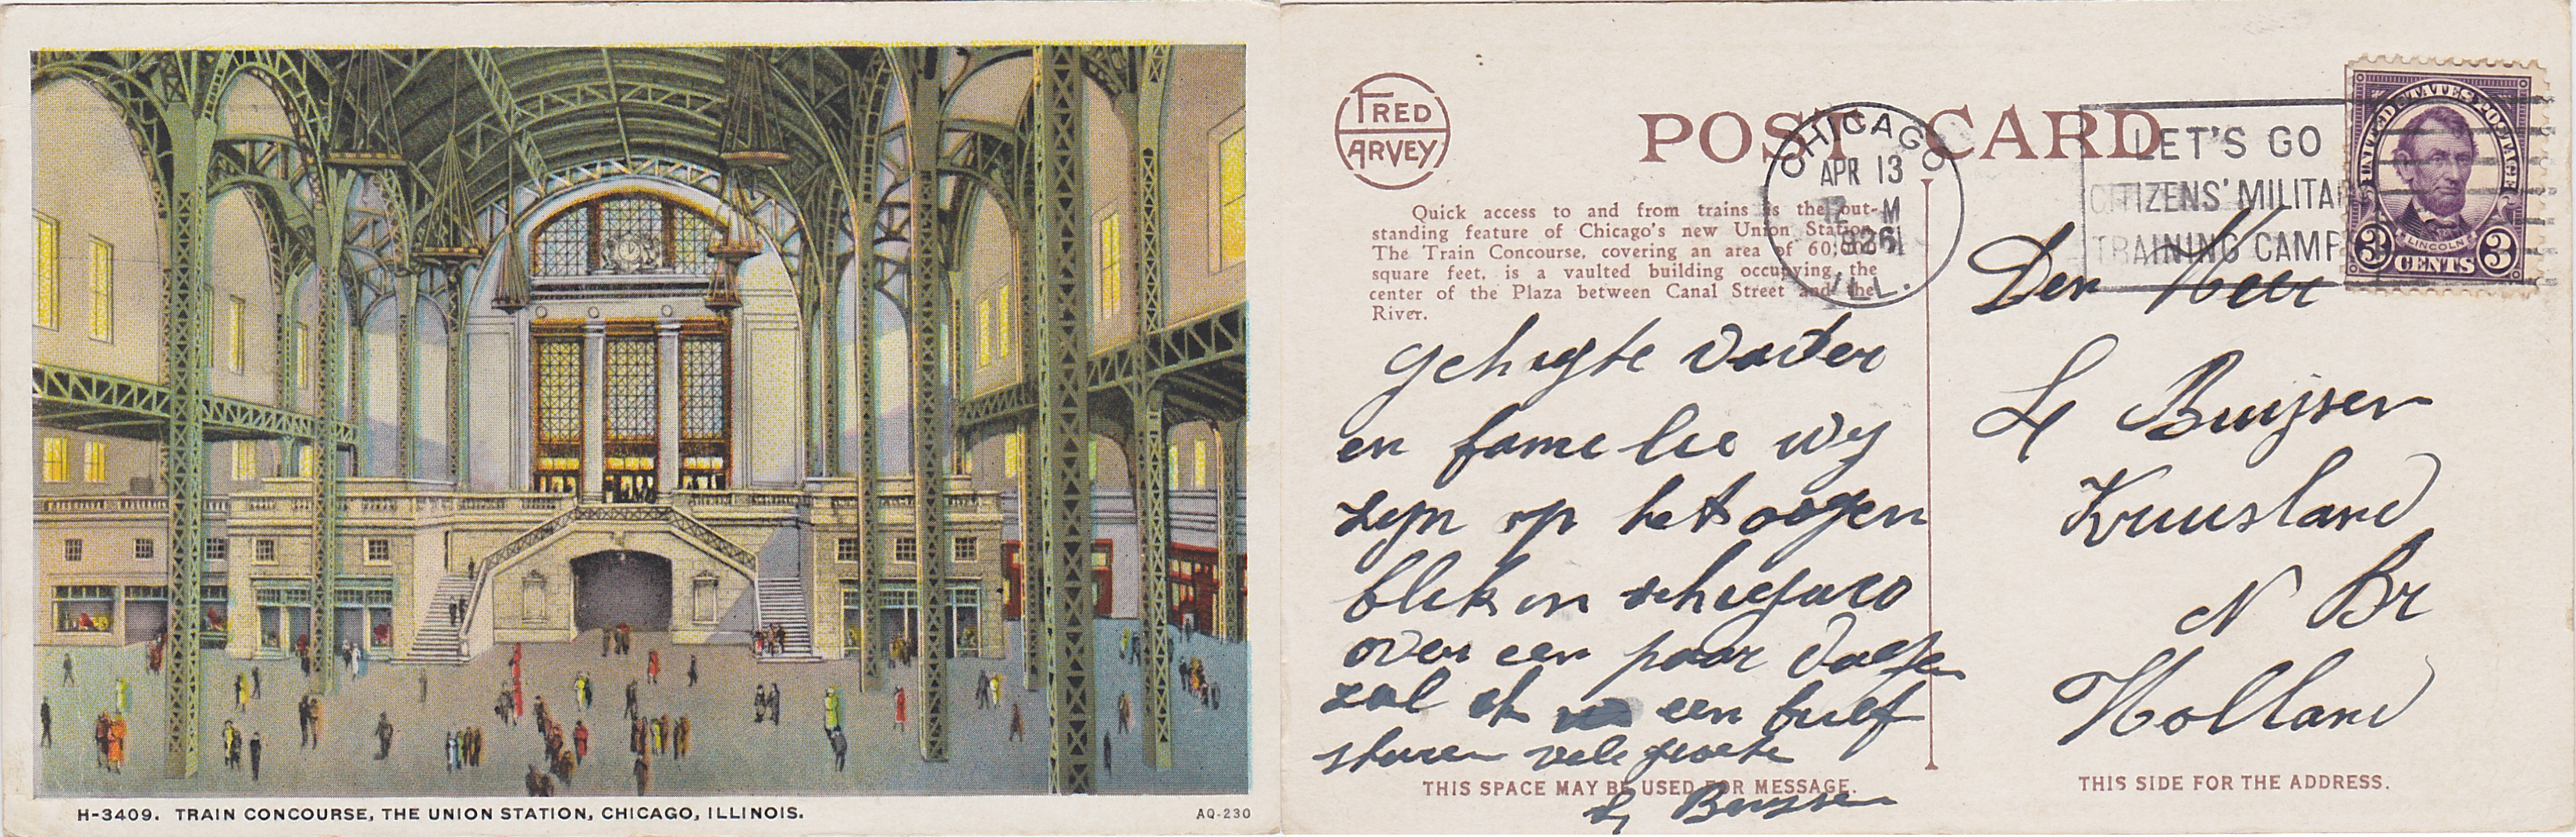 H-3409. TRAIN CONCOURSE, THE UNION STATION, CHICAGO, ILLINOIS.
AQ-230
FRED
HARVEY
POST CARD
Quick access to and from trains is the out-
standing feature of Chicago's new Union Station.
The Train Concourse, covering an area of 60,000
square feet, is a vaulted building occupying the
center of the Plaza between Canal Street and the
River.
CHICAGO
APR 13
12 M
1926
ILL.
LET'S GO
CITIZENS' MILITAR
TRAINING CAMP
UNITED STATES POSTAGE
LINCOLN
3 CENTS 3
gehugte Vader
en familie wy
zyn op het oogen
blik in schiegaco
over een paar dage
zal ik een brief
sturen vele groete
L Buysen
THIS SPACE MAY BE USED FOR MESSAGE.
Den Heer
L Buijsen
Kruusland
N Br
Holland
THIS SIDE FOR THE ADDRESS.